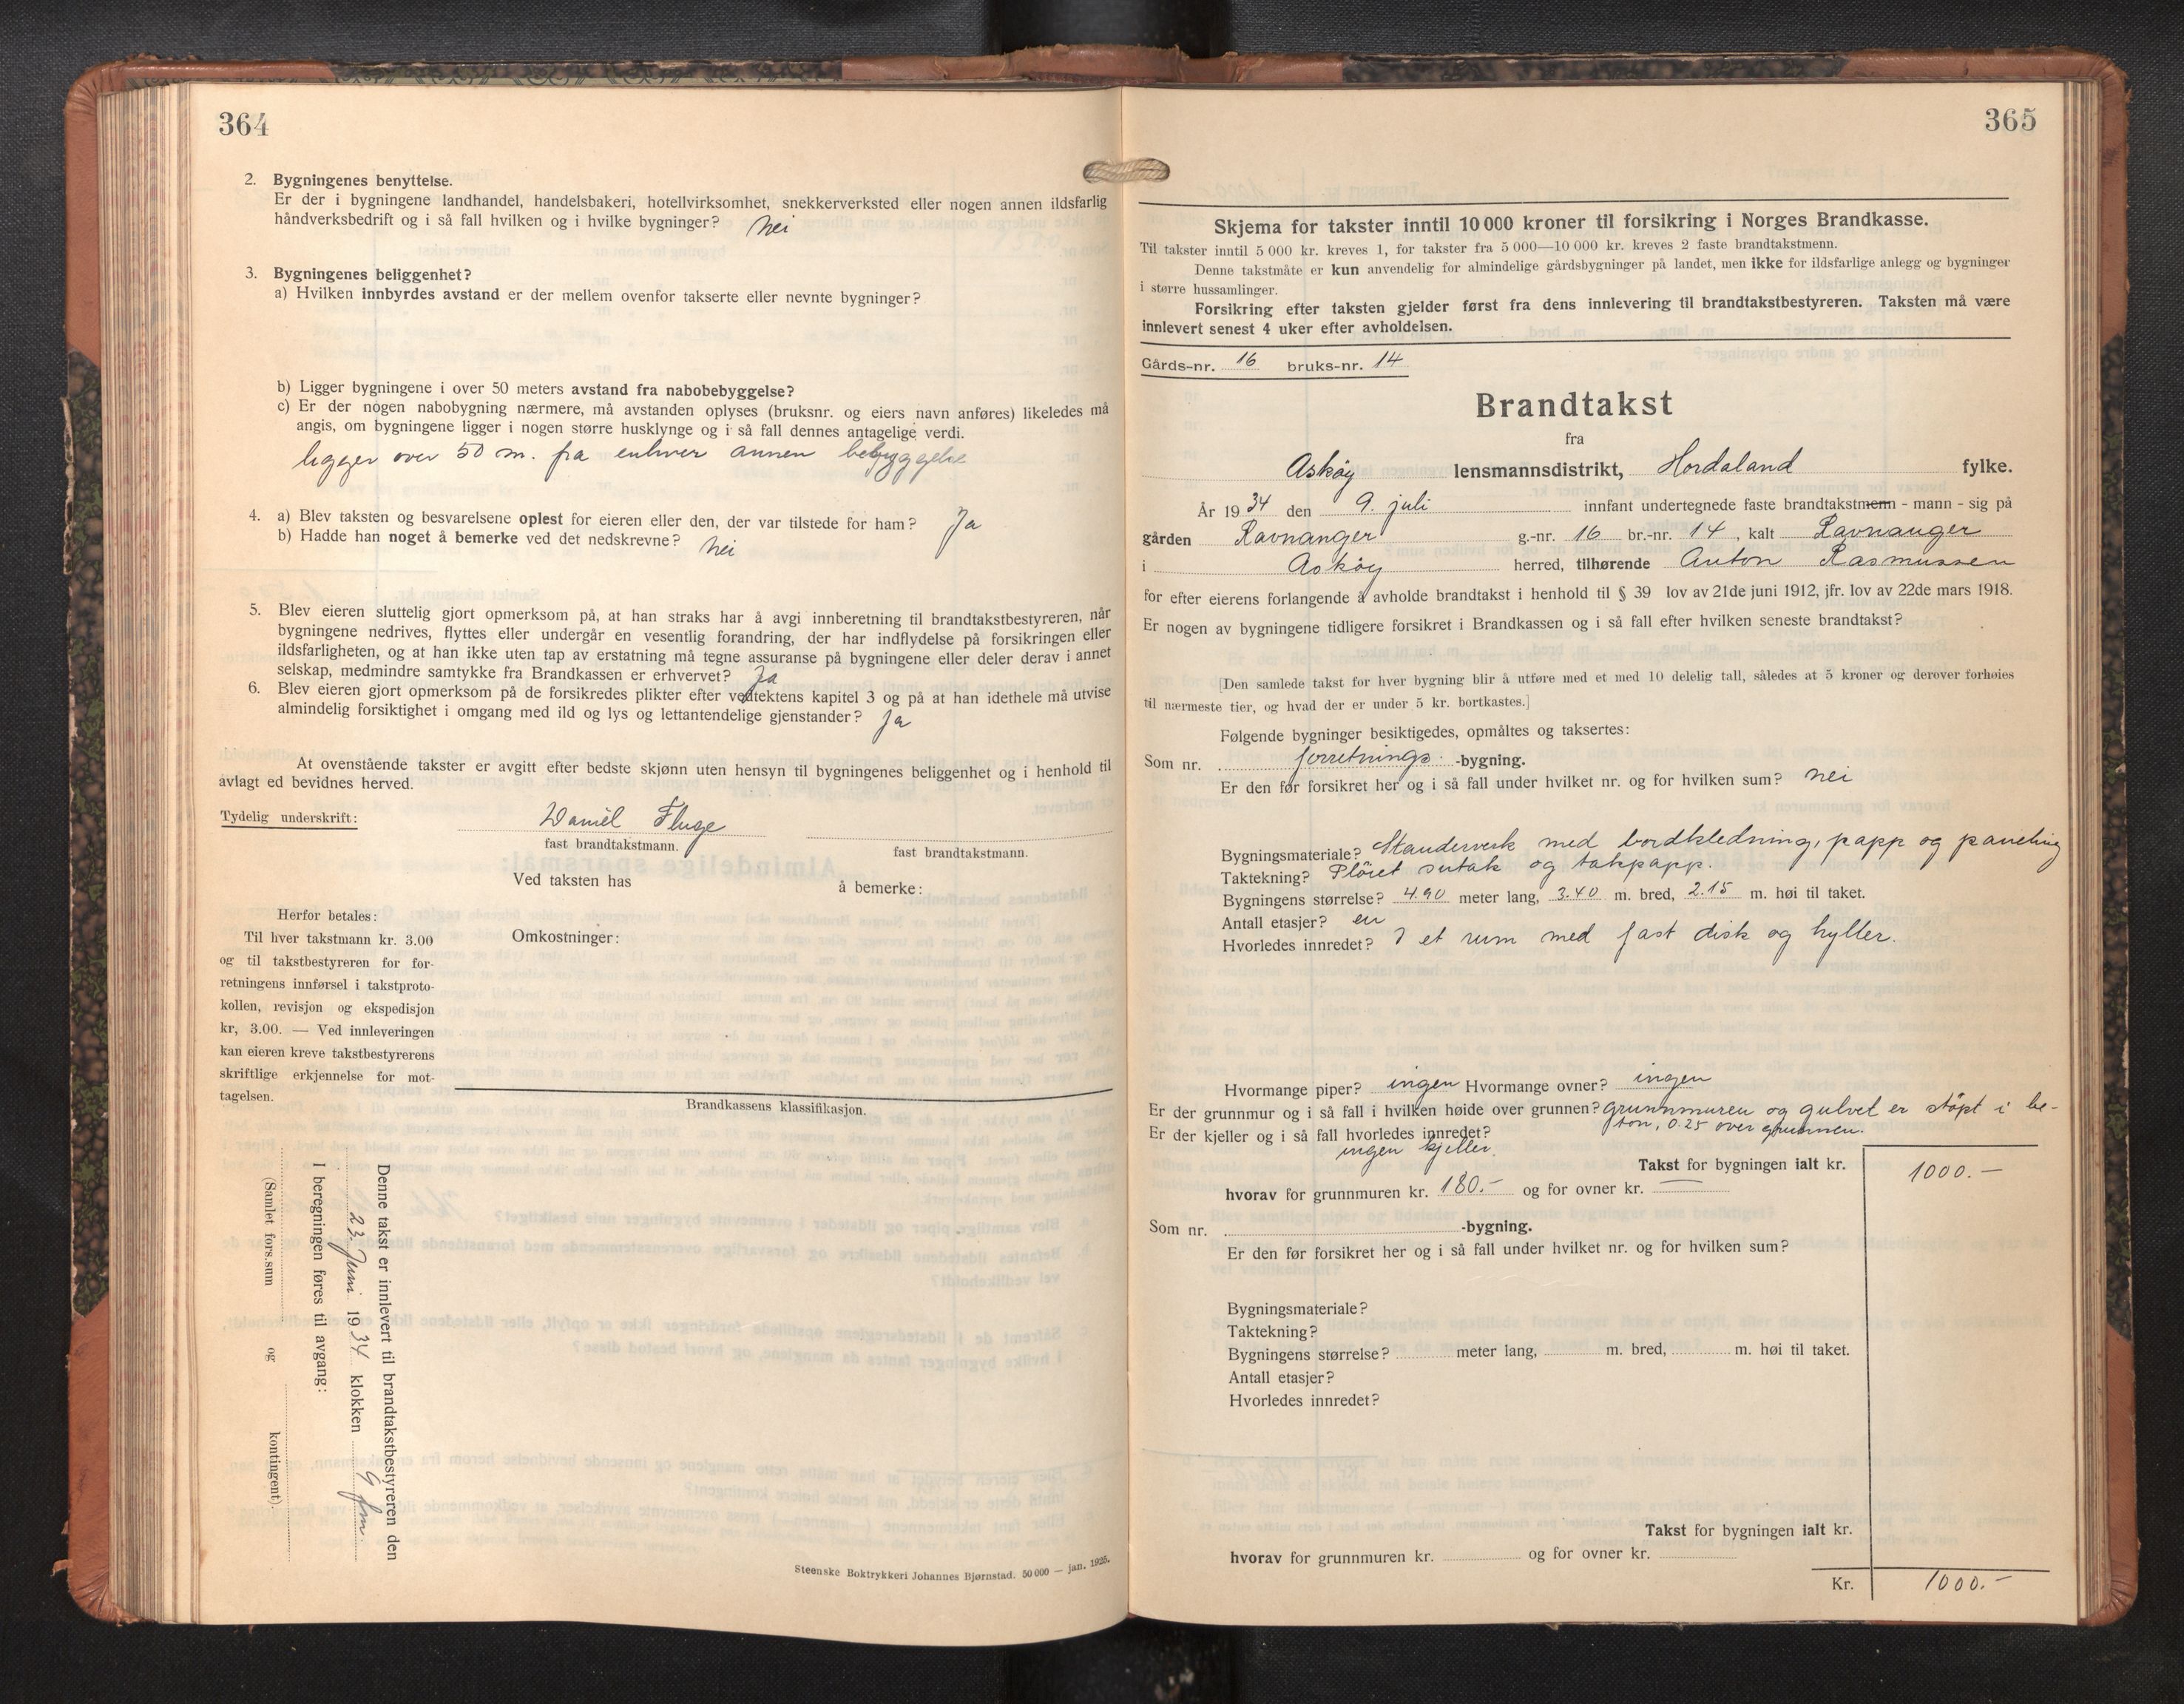 364
2. Bygningenes benyttelse.
Er der i bygningene landhandel, handelsbakeri, hotellvirksomhet, snekkerverksted eller nogen annen ildsfarlig
håndverksbedrift og i så fall hvilken og i hvilke bygninger? Nei
3. Bygningenes beliggenhet?
a) Hvilken innbyrdes avstand er der mellem ovenfor takserte eller nevnte bygninger?
b) Ligger bygningene i over 50 meters avstand fra nabobebyggelse?
c) Er der nogen nabobygning nærmere, må avstanden oplyses (bruksnr. og eiers navn anføres) likeledes må
angis, om bygningene ligger i nogen større husklynge og i så fall dennes antagelige verdi.
ligger over 50 m. fra enhver annen bebyggelse
4. a) Blev taksten og besvarelsene oplest for eieren eller den, der var tilstede for ham? Ja
b) Hadde han noget å bemerke ved det nedskrevne? Nei
5. Blev eieren sluttelig gjort opmerksom på, at han straks har å avgi innberetning til brandtakstbestyreren, når
bygningene nedrives, flyttes eller undergår en vesentlig forandring, der har indflydelse på forsikringen eller
ildsfarligheten, og at han ikke uten tap av erstatning må tegne assuranse på bygningene eller deler derav i annet
selskap, medmindre samtykke fra Brandkassen er erhvervet? Ja
6. Blev eieren gjort opmerksom på de forsikredes plikter efter vedtektens kapitel 3 og på at han idethele må utvise
almindelig forsiktighet i omgang med ild og lys og lettantendelige gjenstander? Ja
At ovenstående takster er avgitt efter bedste skjønn uten hensyn til bygningenes beliggenhet og i henhold til
avlagt ed bevidnes herved.
Tydelig underskrift: Daniel Fluge
fast brandtakstmann. fast brandtakstmann.
Ved taksten has å bemerke:
Herfor betales:
Til hver takstmann kr. 3.00
og til takstbestyreren for for-
retningens innførsel i takstproto-
kollen, revisjon og ekspedisjon
kr, 3.00. — Ved innleveringen
kan eieren kreve takstbestyrerens
skriftlige erkjennelse for mot-
tagelsen.
Omkostninger:
Brandkassens klassifikasjon.
Denne takst er innlevert til brandtakstbestyreren den
23. Juni 1934 klokken 9 fm.
I beregningen føres til avgang:
(Samlet fors.sum og kontingent).
Steenske Boktrykkeri Johannes Bjørnstad. 50 000 — jan. 1928.
365
Skjema for takster inntil 10 000 kroner til forsikring i Norges Brandkasse.
Til takster inntil 5 000 kr. kreves 1, for takster fra 5 000—10 000 kr. kreves 2 faste brandtakstmenn.
Denne takstmåte er kun anvendelig for almindelige gårdsbygninger på landet, men ikke for ildsfarlige anlegg og bygninger
i større hussamlinger.
Forsikring efter taksten gjelder først fra dens innlevering til brandtakstbestyreren. Taksten må være
innlevert senest 4 uker efter avholdelsen.
Gårds-nr. 16 bruks-nr. 14
Brandtakst
fra
Askøy lensmannsdistrikt, Hordaland fylke.
År 1934 den 9. juli innfant undertegnede faste brandtakstmenn - mann - sig på
gården Ravnanger g.-nr. 16 br.-nr. 14, kalt Ravnanger
i Askøy herred, tilhørende Anton Rasmussen
for efter eierens forlangende å avholde brandtakst i henhold til § 39 lov av 21de juni 1912, jfr. lov av 22de mars 1918.
Er nogen av bygningene tidligere forsikret i Brandkassen og i så fall efter hvilken seneste brandtakst?
[Den samlede takst for hver bygning blir å utføre med et med 10 delelig tall, således at 5 kroner og derover forhøies
til nærmeste tier, og hvad der er under 5 kr. bortkastes.]
Følgende bygninger besiktigedes, opmåltes og taksertes:
Som nr. forretnings- -bygning.
Er den før forsikret her og i så fall under hvilket nr. og for hvilken sum? Nei
Bygningsmateriale? Standerverk med bordkledning, papp og paneling
Taktekning? Pløiet sutak og takpapp.
Bygningens størrelse? 4.90 meter lang, 3.40 m. bred, 2.15 m. høi til taket.
Antall etasjer? en
Hvorledes innredet? I et rum med fast disk og hyller.
Hvormange piper? ingen Hvormange ovner? ingen
Er der grunnmur og i så fall i hvilken høide over grunnen? Grunnmuren og gulvet er støpt i be-
ton, 0.25 over grunnen.
Er der kjeller og i så fall hvorledes innredet?
ingen kjeller.
Takst for bygningen ialt kr. 1000.-
hvorav for grunnmuren kr. 180.- og for ovner kr. —
Som nr. -bygning.
Er den før forsikret her og i så fall under hvilket nr. og for hvilken sum?
Bygningsmateriale?
Taktekning?
Bygningens størrelse? meter lang, m. bred, m. høi til taket.
Antall etasjer?
Hvorledes innredet?
Takst for bygningen ialt kr.
hvorav for grunnmuren kr. og for ovner kr.
Kr. 1000.-